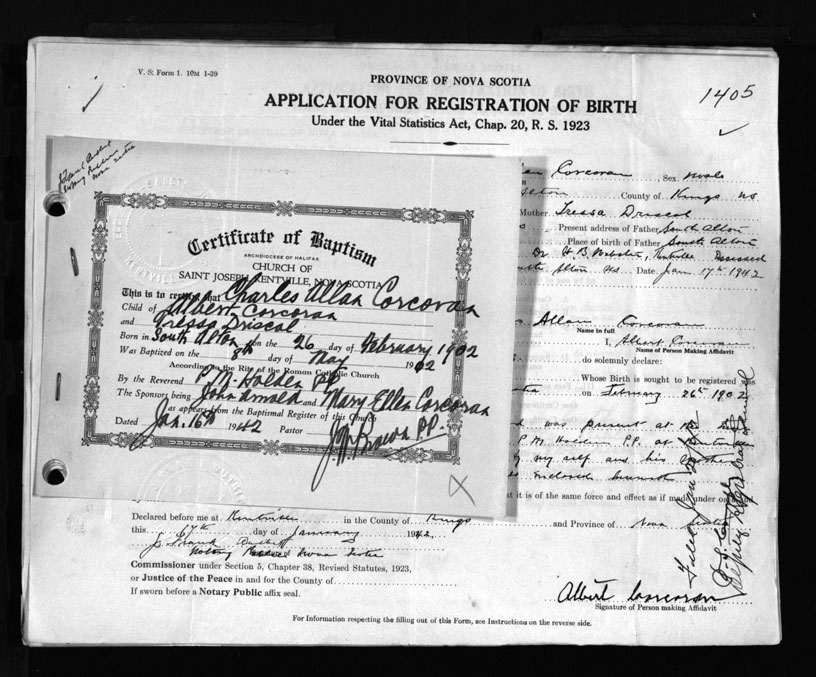 V. S. Form 1. 10M 1-39
1405
PROVINCE OF NOVA SCOTIA
APPLICATION FOR REGISTRATION OF BIRTH
Under the Vital Statistics Act, Chap. 20, R. S. 1923
Certificate of Baptism
ARCHDIOCESE OF HALIFAX
CHURCH OF
SAINT JOSEPH, KENTVILLE, NOVA SCOTIA
This is to certify that Charles Allan Corcoran
Child of Albert Corcoran
and Tressa Driscol
Born in South Alton on the 26 day of February 1902
Was Baptized on the 8th day of May 1902
According to the Rite of the Roman Catholic Church
By the Reverend P. M. Holden PP.
The Sponsors being John Arnold and Mary Ellen Corcoran
as appears from the Baptismal Register of this Church
Dated Jan. 16th 1942 Pastor Brown P.P.
Corcoran, Sex Male
County of Kings NS
Mother Tressa Driscol
Present address of Father South Alton
Place of birth of Father South Alton
Dr H. B. Webster, Kentville Deceased
Date Jan 17th 1942
Allan Corcoran
Name in full
I, Albert Corcoran
Name of Person Making Affidavit
do solemnly declare:
Whose Birth is sought to be registered was
on February 26th 1902
was present at
P M Holden P.P. at Kentville
my self and his
enclosed
it is of the same force and effect as if made under
Declared before me at Kentville in the County of Kings and Province of Nova Scotia
this 17th day of January 1942
Notary Nova Scotia
Commissioner under Section 5, Chapter 38, Revised Statutes, 1923,
or Justice of the Peace in and for the County of
If sworn before a Notary Public affix seal.
Albert Corcoran
Signature of Person making Affidavit
For Information respecting the filling out of this Form, see Instructions on the reverse side.
Deputy Registrar General